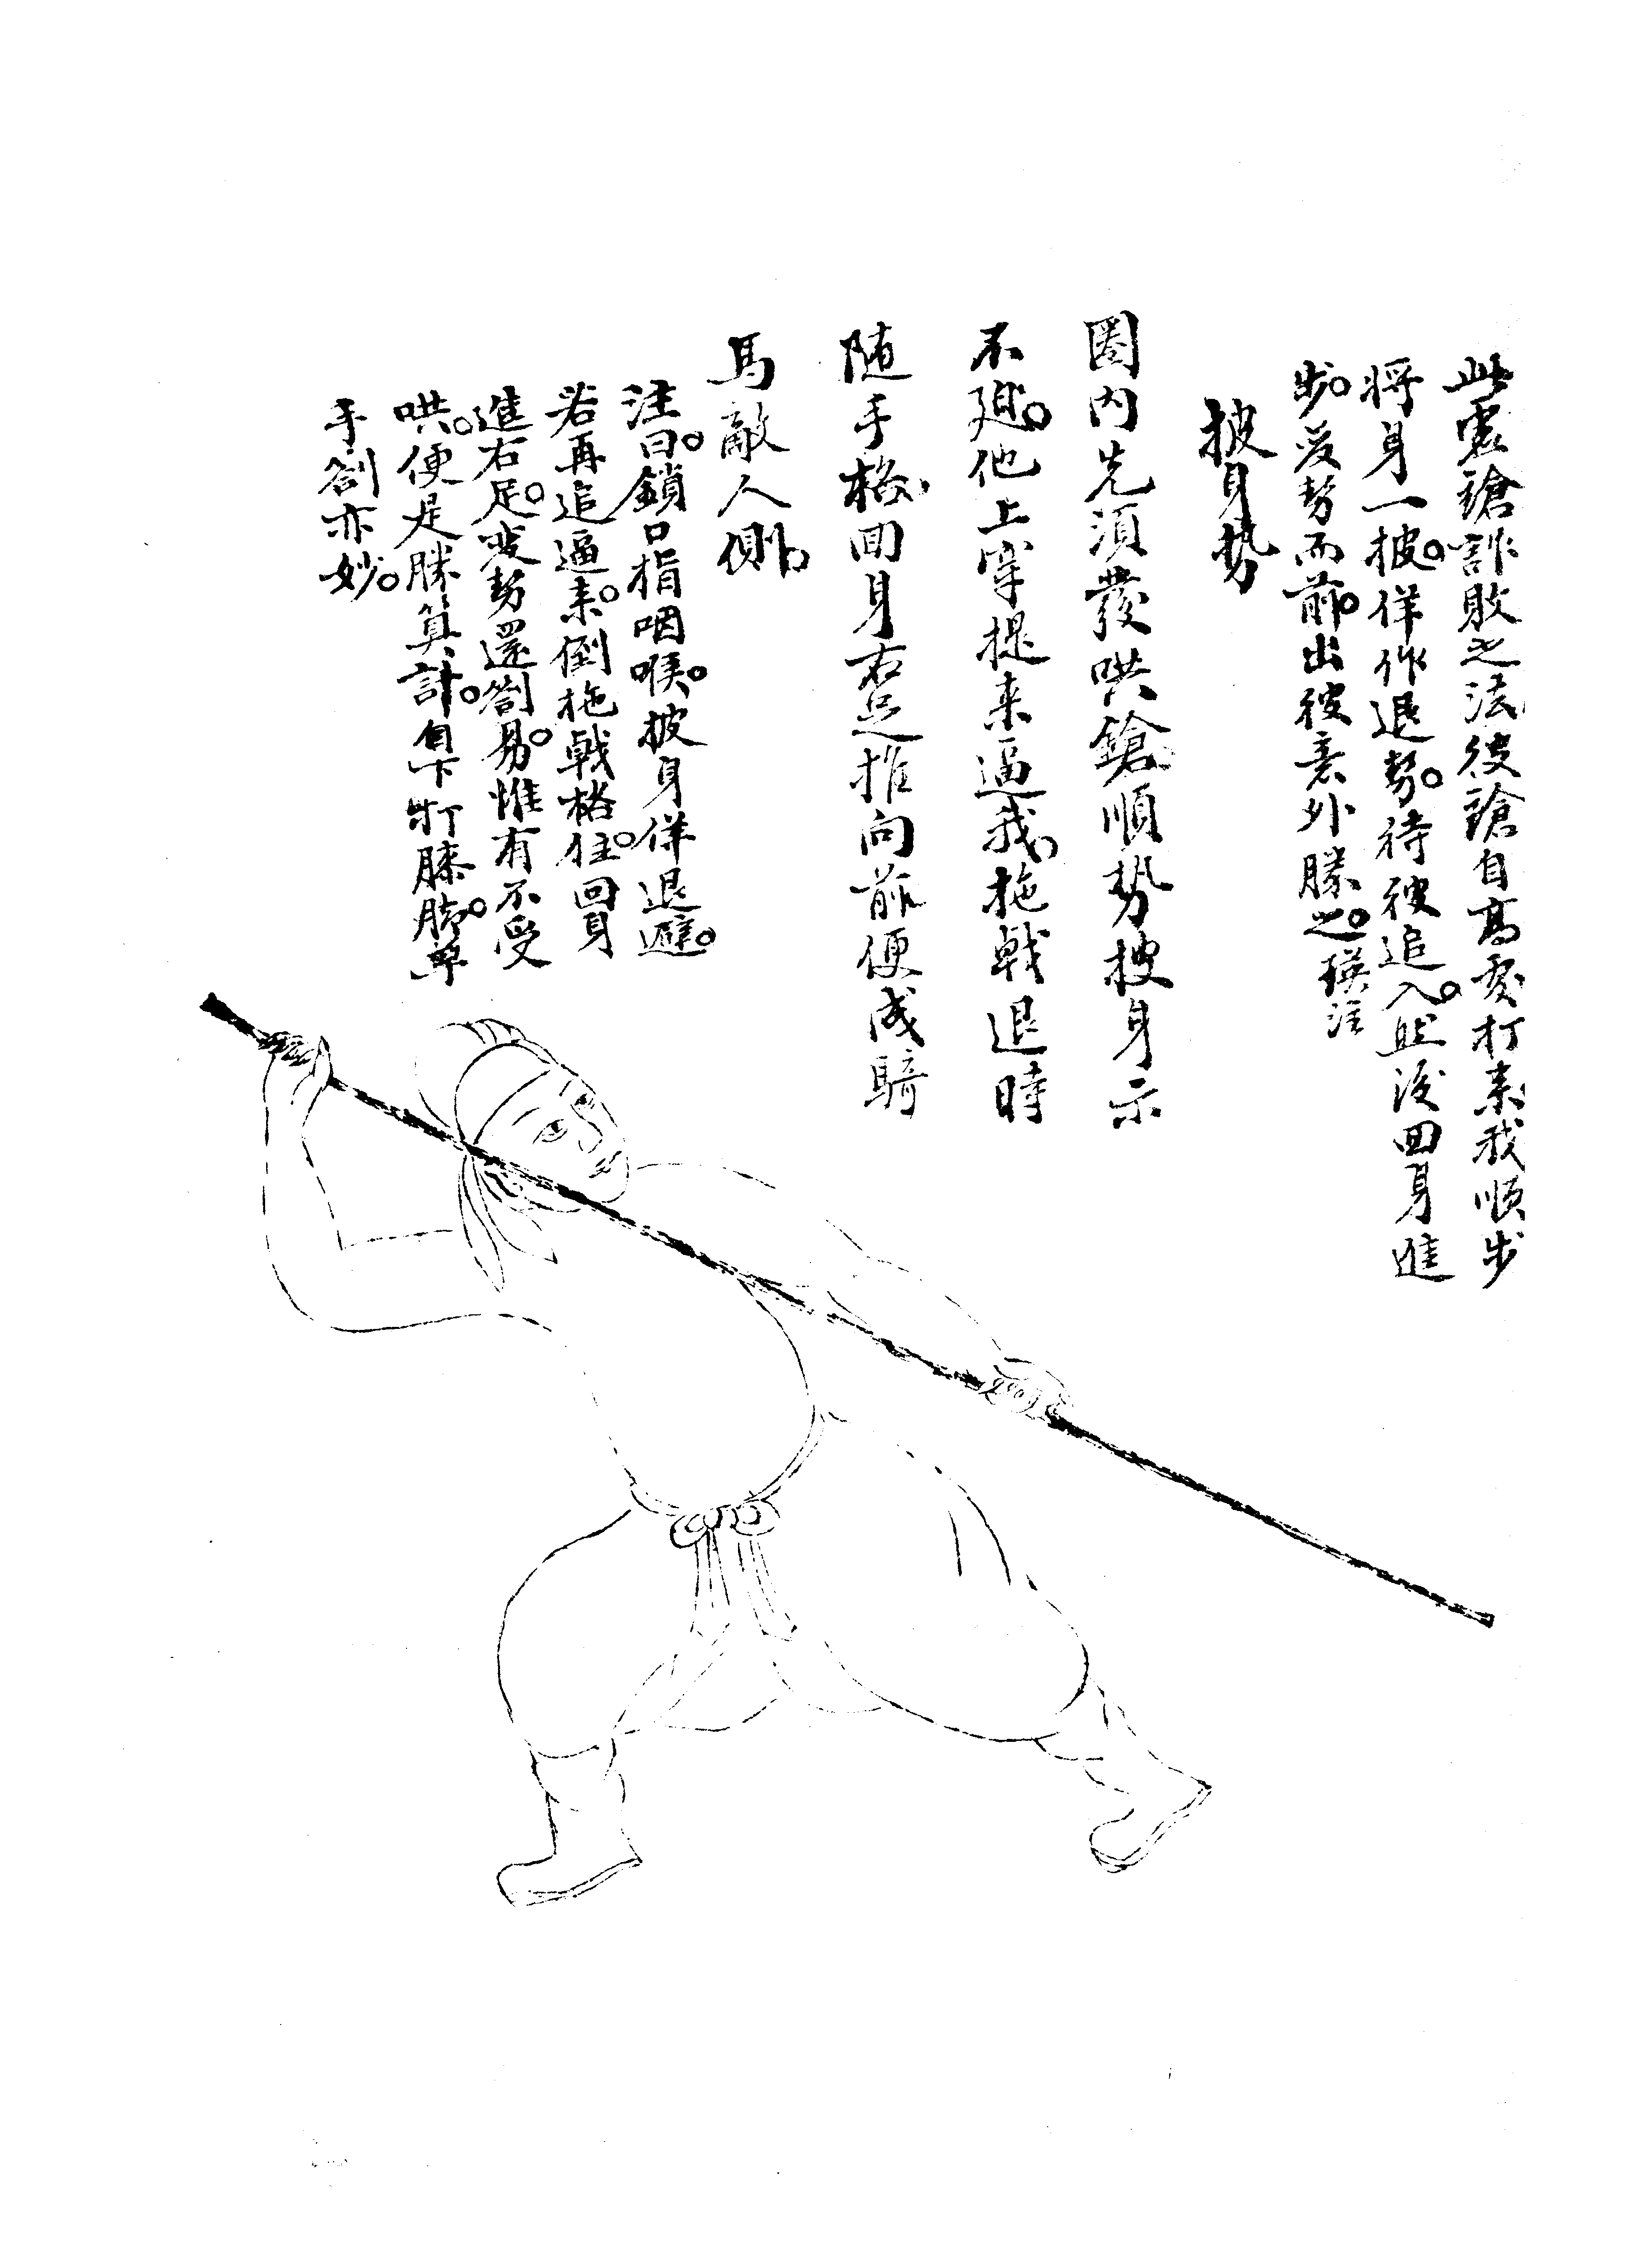 此虚鎗詐敗之法彼鎗自高處打来我順步
將身一披。佯作退势。待彼追入。然後回身進
步。变势而前。出彼意外勝之。瑛注
披身势
圈内先須發哄鎗順势披身示
不廹。他上穿提来逼我、拖戟退時
随手格、回身右足推向前便成騎
馬敵人側。
注曰。鎖口指咽喉。披身佯退避。
若再追逼来。倒拖戟格住。回身
進右足。变势還劄易。惟有不受
哄。便是勝算計。自下打膝脚。单
手劄亦妙。